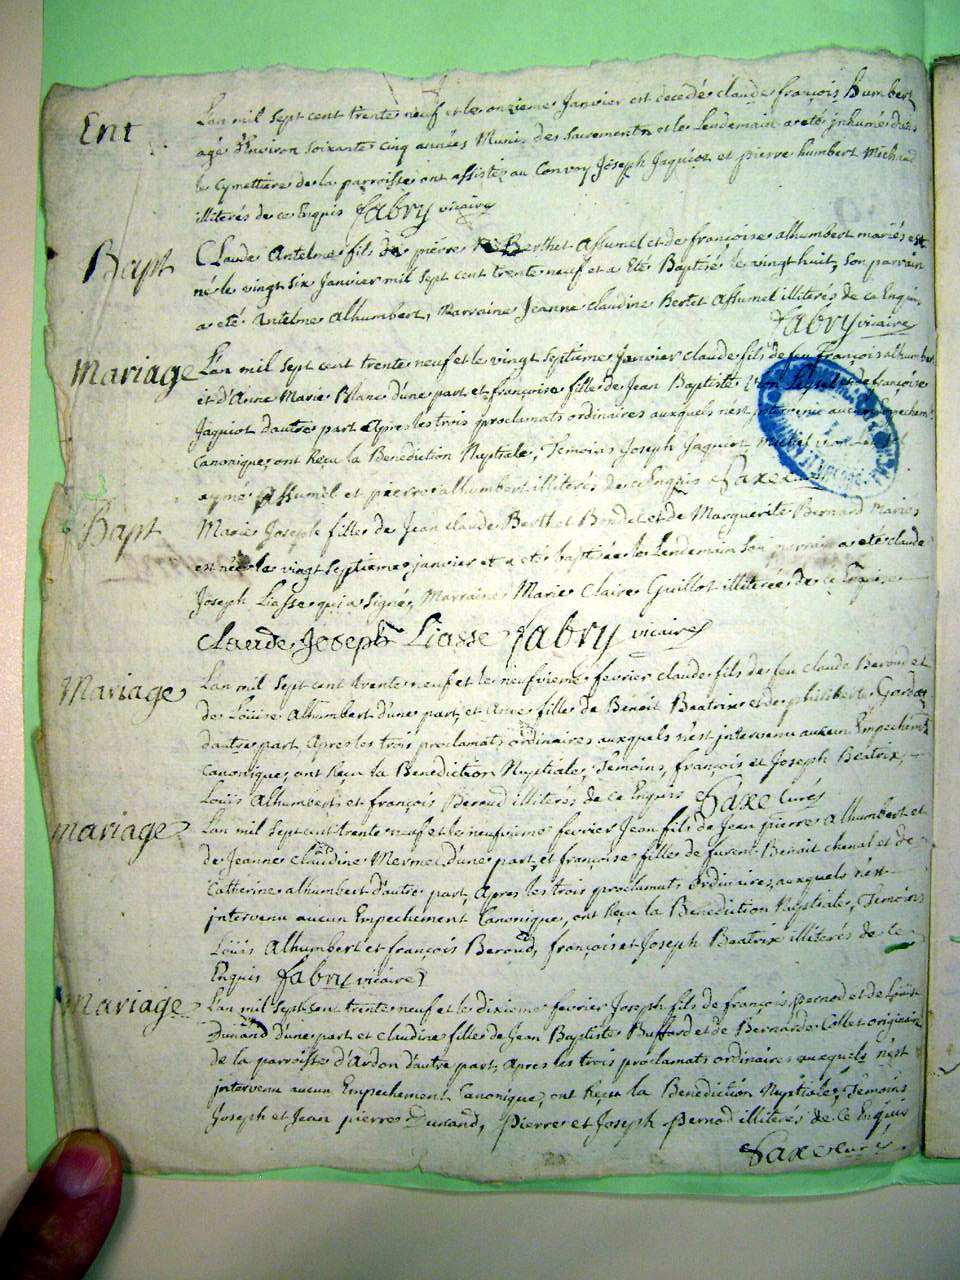 Ent
L'an mil sept cent trente neuf et le onzieme Janvier est decedé claude françois humbert
agé d'Environ soixante cinq années Munis des sacrements et le Lendemain a eté jnhumé dans
le Cymettiere de la parroisse ont assistez au Convoy Joseph Jaquiot et pierre humbert Michaud
illiterés de ce Enquis Fabry vicaire
Bapt
Claude Antelme fils de pierre Berthet Assumel et de françoise alhumbert mariés est
né le vingt six Janvier mil sept cent trente neuf et a Eté Baptisé le vingt huit, son parrain
a eté Antelme Alhumbert, Marraine Jeanne claudine Bertet Assumel illiterés de ce Enquis
Fabry vicaire
Mariage
L'an mil sept cent trente neuf et le vingt septième Janvier claude fils de feu François alhumbert
et d'Anne Marie Blanc d'une part et françoise fille de Jean Baptiste et de françoise
Jaquiot d'autre part Apres les trois proclamats ordinaires auxquels n'est jntervenu aucun Empechem
Canonique, ont Reçu la Benediction Nuptiale, Temoins Joseph Jaquiot, Michel
ayme Assumel et pierre alhumbert illiterés de ce Enquis Saxe
Bapt
Marie Joseph fille de Jean claude Berthet Bondet et de Marguerite Bernard Mariés
est née le vingt septieme janvier et a eté baptisée le Lendemain son parrain a eté claude
Joseph Liasse qui a signé, Marraine Marie Claire Guillot illiterée de ce Enquise
Claude Joseph Liasse Fabry vicaire
Mariage
L'an mil sept cent trente neuf et le neufvieme fevrier claude fils de feu claude Beroud et
de Loüise Alhumbert d'une part, et Anne fille de Benoit Beatrix et de philiberte
d'autre part Apres les trois proclamats ordinaires auxquels n'est jntervenu aucun Empechemt
Canonique, ont Reçu la Benediction Nuptiale, Temoins, françois et Joseph Beatrix,
Loüis Alhumbert et françois Beroud illiterés de ce Enquis Saxe Curé
Mariage
L'an mil sept cent trente neuf et le neufvieme fevrier Jean fils de Jean pierre alhumbert et
de Jeanne claudine Mermet d'une part, et françoise fille de furent Benoit chenal et de
Catherine alhumbert d'autre part, Apres les trois proclamats ordinaires, auxquels n'est
jntervenu aucun Empechement Canonique, ont Reçu la Benediction Nuptiale, Temoins
Loüis Alhumbert et françois Beroud, françois et Joseph Beatrix illiterés de ce
Enquis Fabry vicaire
Mariage
L'an mil sept cent trente neuf et le dixieme fevrier Joseph fils de françois pernod et de Loüise
Durand d'une part et claudine fille de Jean Baptiste Buffard et de Bernarde Collet originaire
de la parroisse d'Ardon d'autre part, Apres les trois proclamats ordinaires auxquels n'est
jntervenu aucun Empechement Canonique, ont Reçu la Benediction Nuptiale, Temoins
Joseph et Jean pierre Durand, Pierre et Joseph pernod illiterés de ce Enquis
Saxe curé